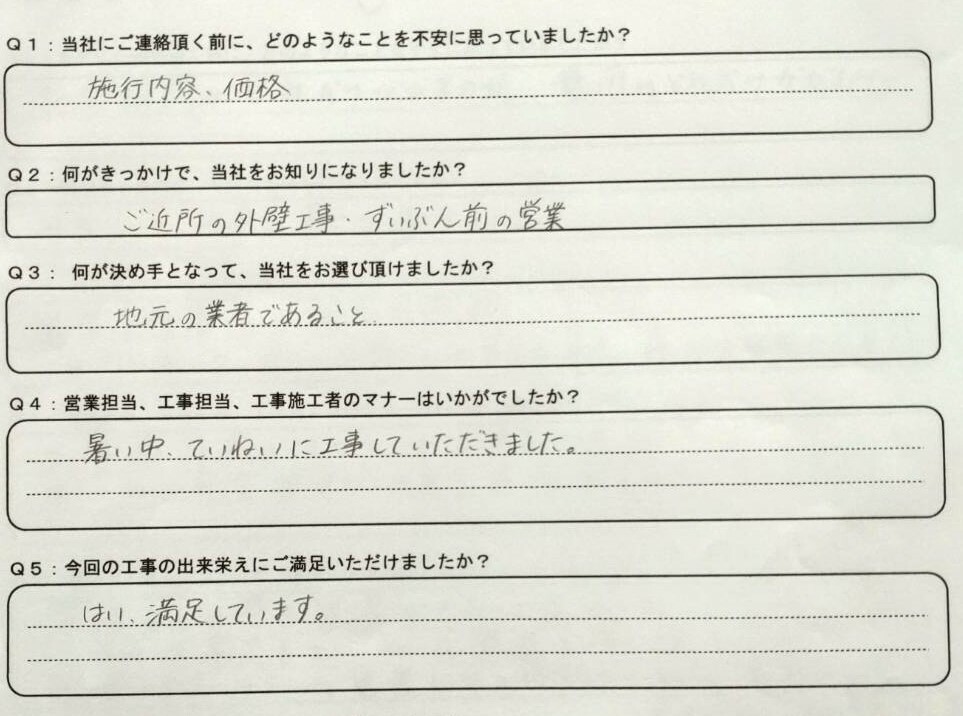 Q1：当社にご連絡頂く前に、どのようなことを不安に思っていましたか？
施行内容、価格
Q2：何がきっかけで、当社をお知りになりましたか？
ご近所の外壁工事・ずいぶん前の営業
Q3： 何が決め手となって、当社をお選び頂けましたか？
地元の業者であること
Q4：営業担当、工事担当、工事施工者のマナーはいかがでしたか？
暑い中、ていねいに工事していただきました。
Q5：今回の工事の出来栄えにご満足いただけましたか？
はい、満足しています。